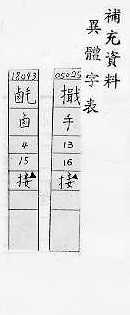 補充資料
異體字表
05025
擑
手
13
16
接▲
18093
鹵
4
15
接▲